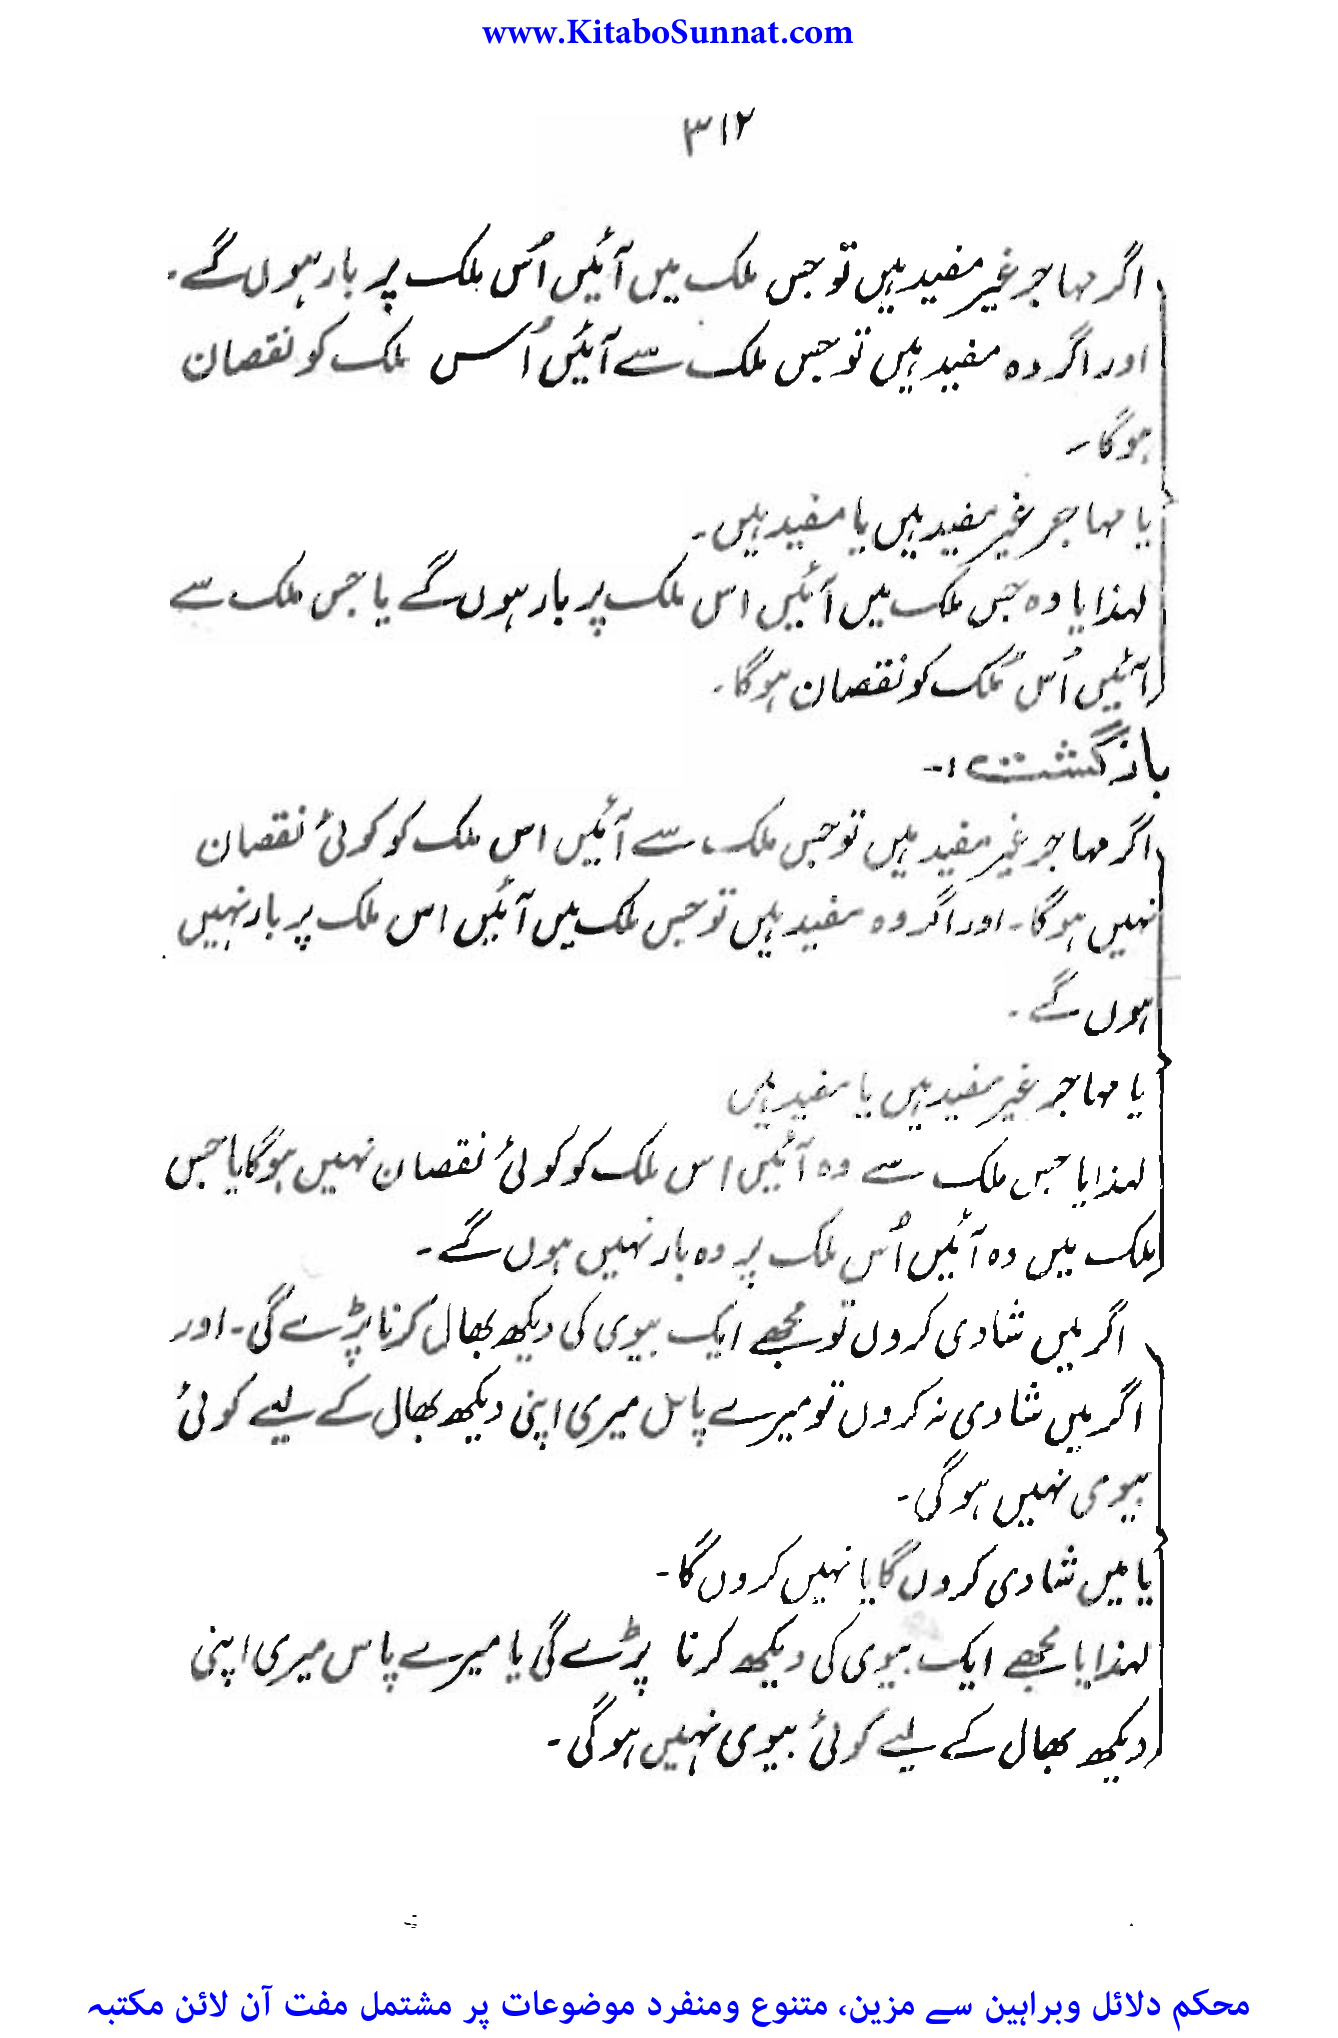 www.KitaboSunnat.com
۳۱۲
اگر مہاجر غیر مفید ہیں تو جس ملک میں آئیں اُس ملک پر بار ہوں گے۔
اور اگر وہ مفید ہیں تو جس ملک سے آئیں اُس ملک کو نقصان
ہوگا۔
یا مہاجر غیر مفید ہیں یا مفید ہیں۔
لہذا یا وہ جس ملک میں آئیں اس ملک پر بار ہوں گے یا جس ملک سے
آئیں اُس مُلک کو نقصان ہوگا۔
بازگشت :-
اگر مہاجر غیر مفید ہیں تو جس ملک سے آئیں اس ملک کو کوئی نقصان
نہیں ہوگا۔ اور اگر وہ مفید ہیں تو جس ملک میں آئیں اس ملک پر بار نہیں
ہوں گے۔
یا مہاجر غیر مفید ہیں یا مفید ہیں
لہذا یا جس ملک سے وہ آئیں اس ملک کو کوئی نقصان نہیں ہوگا یا جس
ملک میں وہ آئیں اُس ملک پر وہ بار نہیں ہوں گے۔
اگر میں شادی کروں تو مجھے ایک بیوی کی دیکھ بھال کرنا پڑے گی۔ اور
اگر میں شادی نہ کروں تو میرے پاس میری اپنی دیکھ بھال کے لیے کوئی
بیوی نہیں ہوگی۔
یا میں شادی کروں گا یا نہیں کروں گا۔
لہذا یا مجھے ایک بیوی کی دیکھ کرنا پڑے گی یا میرے پاس میری اپنی
دیکھ بھال کے لیے کوئی بیوی نہیں ہوگی۔
محکم دلائل وبراہین سے مزین، متنوع ومنفرد موضوعات پر مشتمل مفت آن لائن مکتبہ